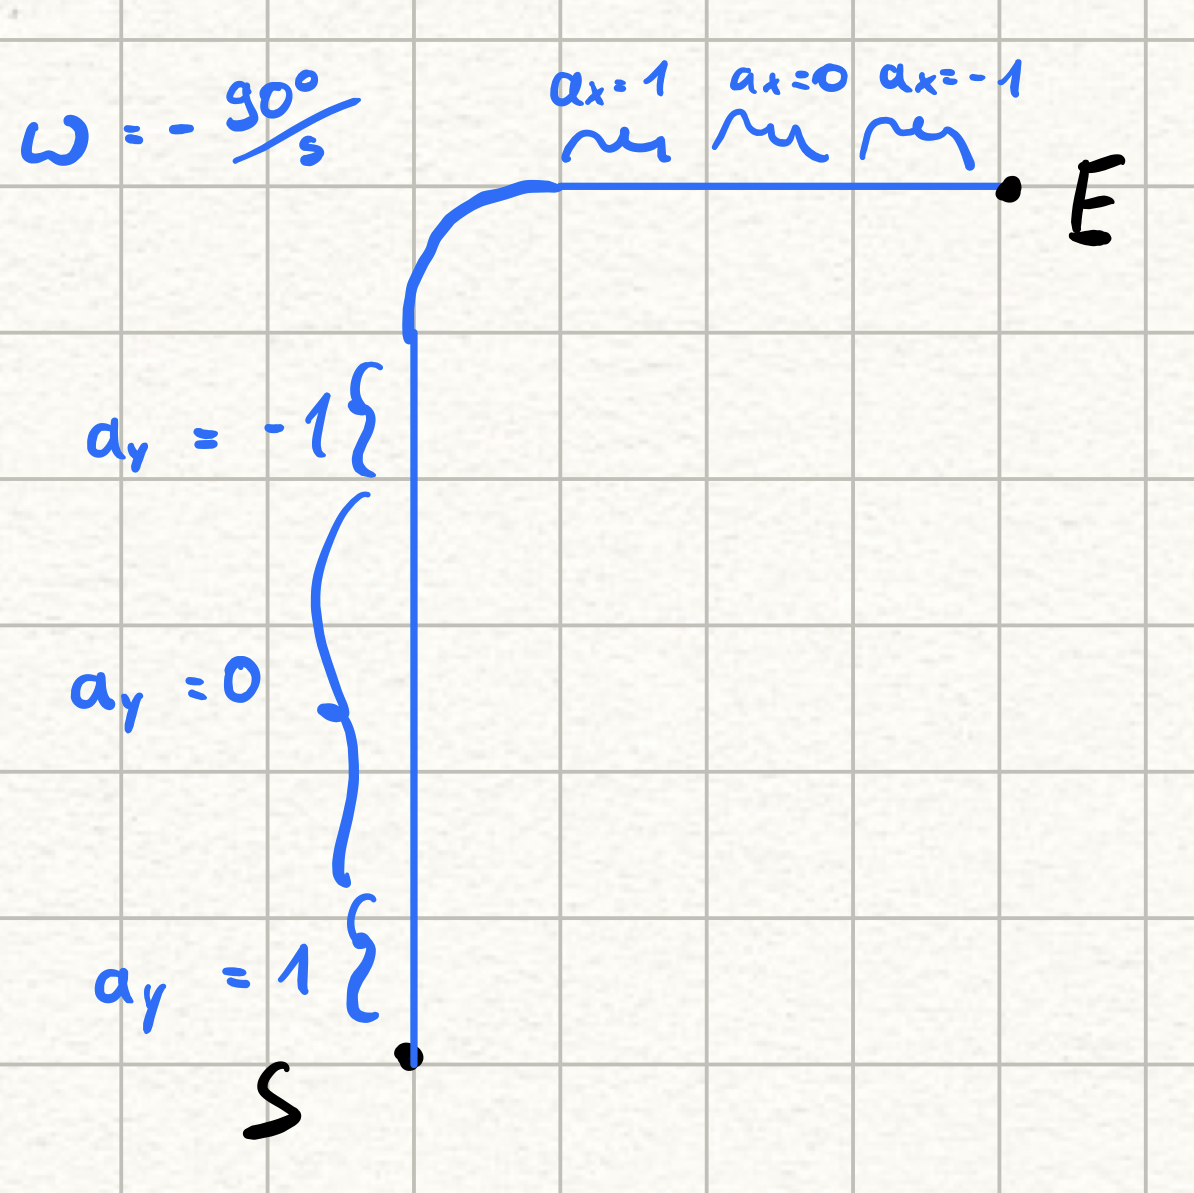 ω = - 90°/s
aₓ = 1
aₓ = 0
aₓ = -1
E
a_y = -1
a_y = 0
a_y = 1
S